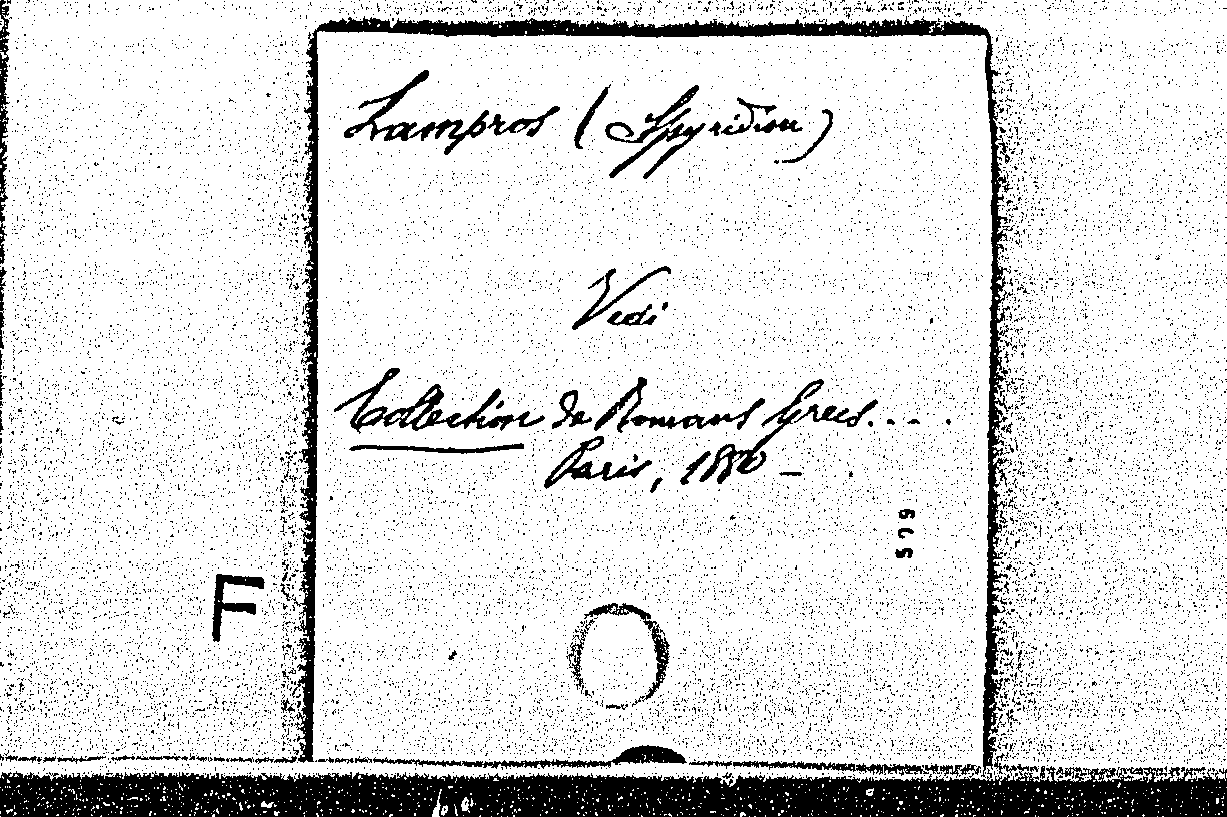 Lampros (Spyridion)
Vedi
Collection de Romans Grecs....
Paris, 1880 –
509
F